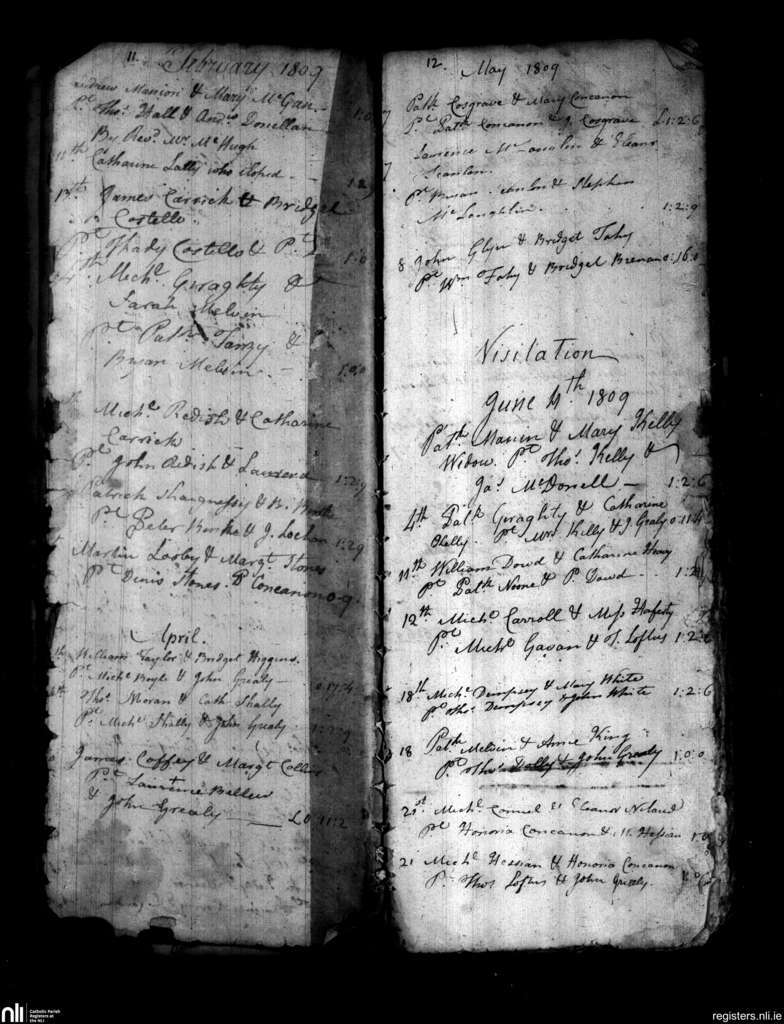 11.
February 1809
Andrew Manion & Mary McGan
Pt. Thos. Hall & Andw. Donellan 1:0
By Revd. Mr McHugh
11th Catharine Lally who eloped 1:2:9
13th James Carrick & Bridget
Costello
Pt. Thady Costello & P. 1:0
Michl. Geraghty &
Sarah Melvin
Pt. Patk. Tanzy &
Busan Melvin 1:0:0
Michl. Redish & Catharine
Carrick
Pt. John Redish & 1:2:9
Patrick Shaugnessy & B. Burke
Pt. Peter Burke & J. Lochan 1:2:9
Martin Looby & Margt. Stones
Pt. Denis Stones. P Concanon 0.9.
April.
William Taylor & Bridget Higgins.
Pt. Michl. Boyle & John Grealy 0.17:4
Thos. Moran & Cath Shally
Pt. Michl. Shally & John Grealy 1:2:9
James Coffey & Margt Collins
Pt. Laurence Ballew
& John Grealy £0:11:2
12.
May 1809
7 Patk Cosgrave & Mary Concanon
Pt. Patk Concanon & J. Cosgrave £1:2:6
7 Laurence McLauclin & Eleanr
Scanlan
Pt. Busan Scanlon & Stephen
McLaughlin. 1:2:9
8 John Glyn & Bridget Fahy
Pt. Wm Fahy & Bridget Brenan 0:16:0
Visitation
June 4th 1809
Patk. Manin & Mary Kelly
Widow. Pt. Thos. Kelly &
Jas. McDonell 1:2:6
4th Patk Geraghty & Catharine
OKelly. Pt. Mrs Kelly & J. Grealy 0:11:4
11th William Dowd & Catharine Heavy
Pt. Patk Noone & P. Dowd 1:2:
12th Michl Carroll & Miss Hafesty
Pt. Michl Gavan & T. Loftus 1:2:6
18th Michl. Dempsey & Mary White
Pt. Thos. Dempsey & John White 1:2:6
18 Patk Melvin & Anne King
Pt. Thos. Dolly & John Grealy 1:0:0
21st. Michl. Connel & Eleanor Noland
Pt. Honoria Concanon & M. Hessian 1:0
21 Michl Hessian & Honoria Concanon
Pt. Thos Loftus & John Grealy
nli
Catholic Parish
Registers at
the NLI
registers.nli.ie